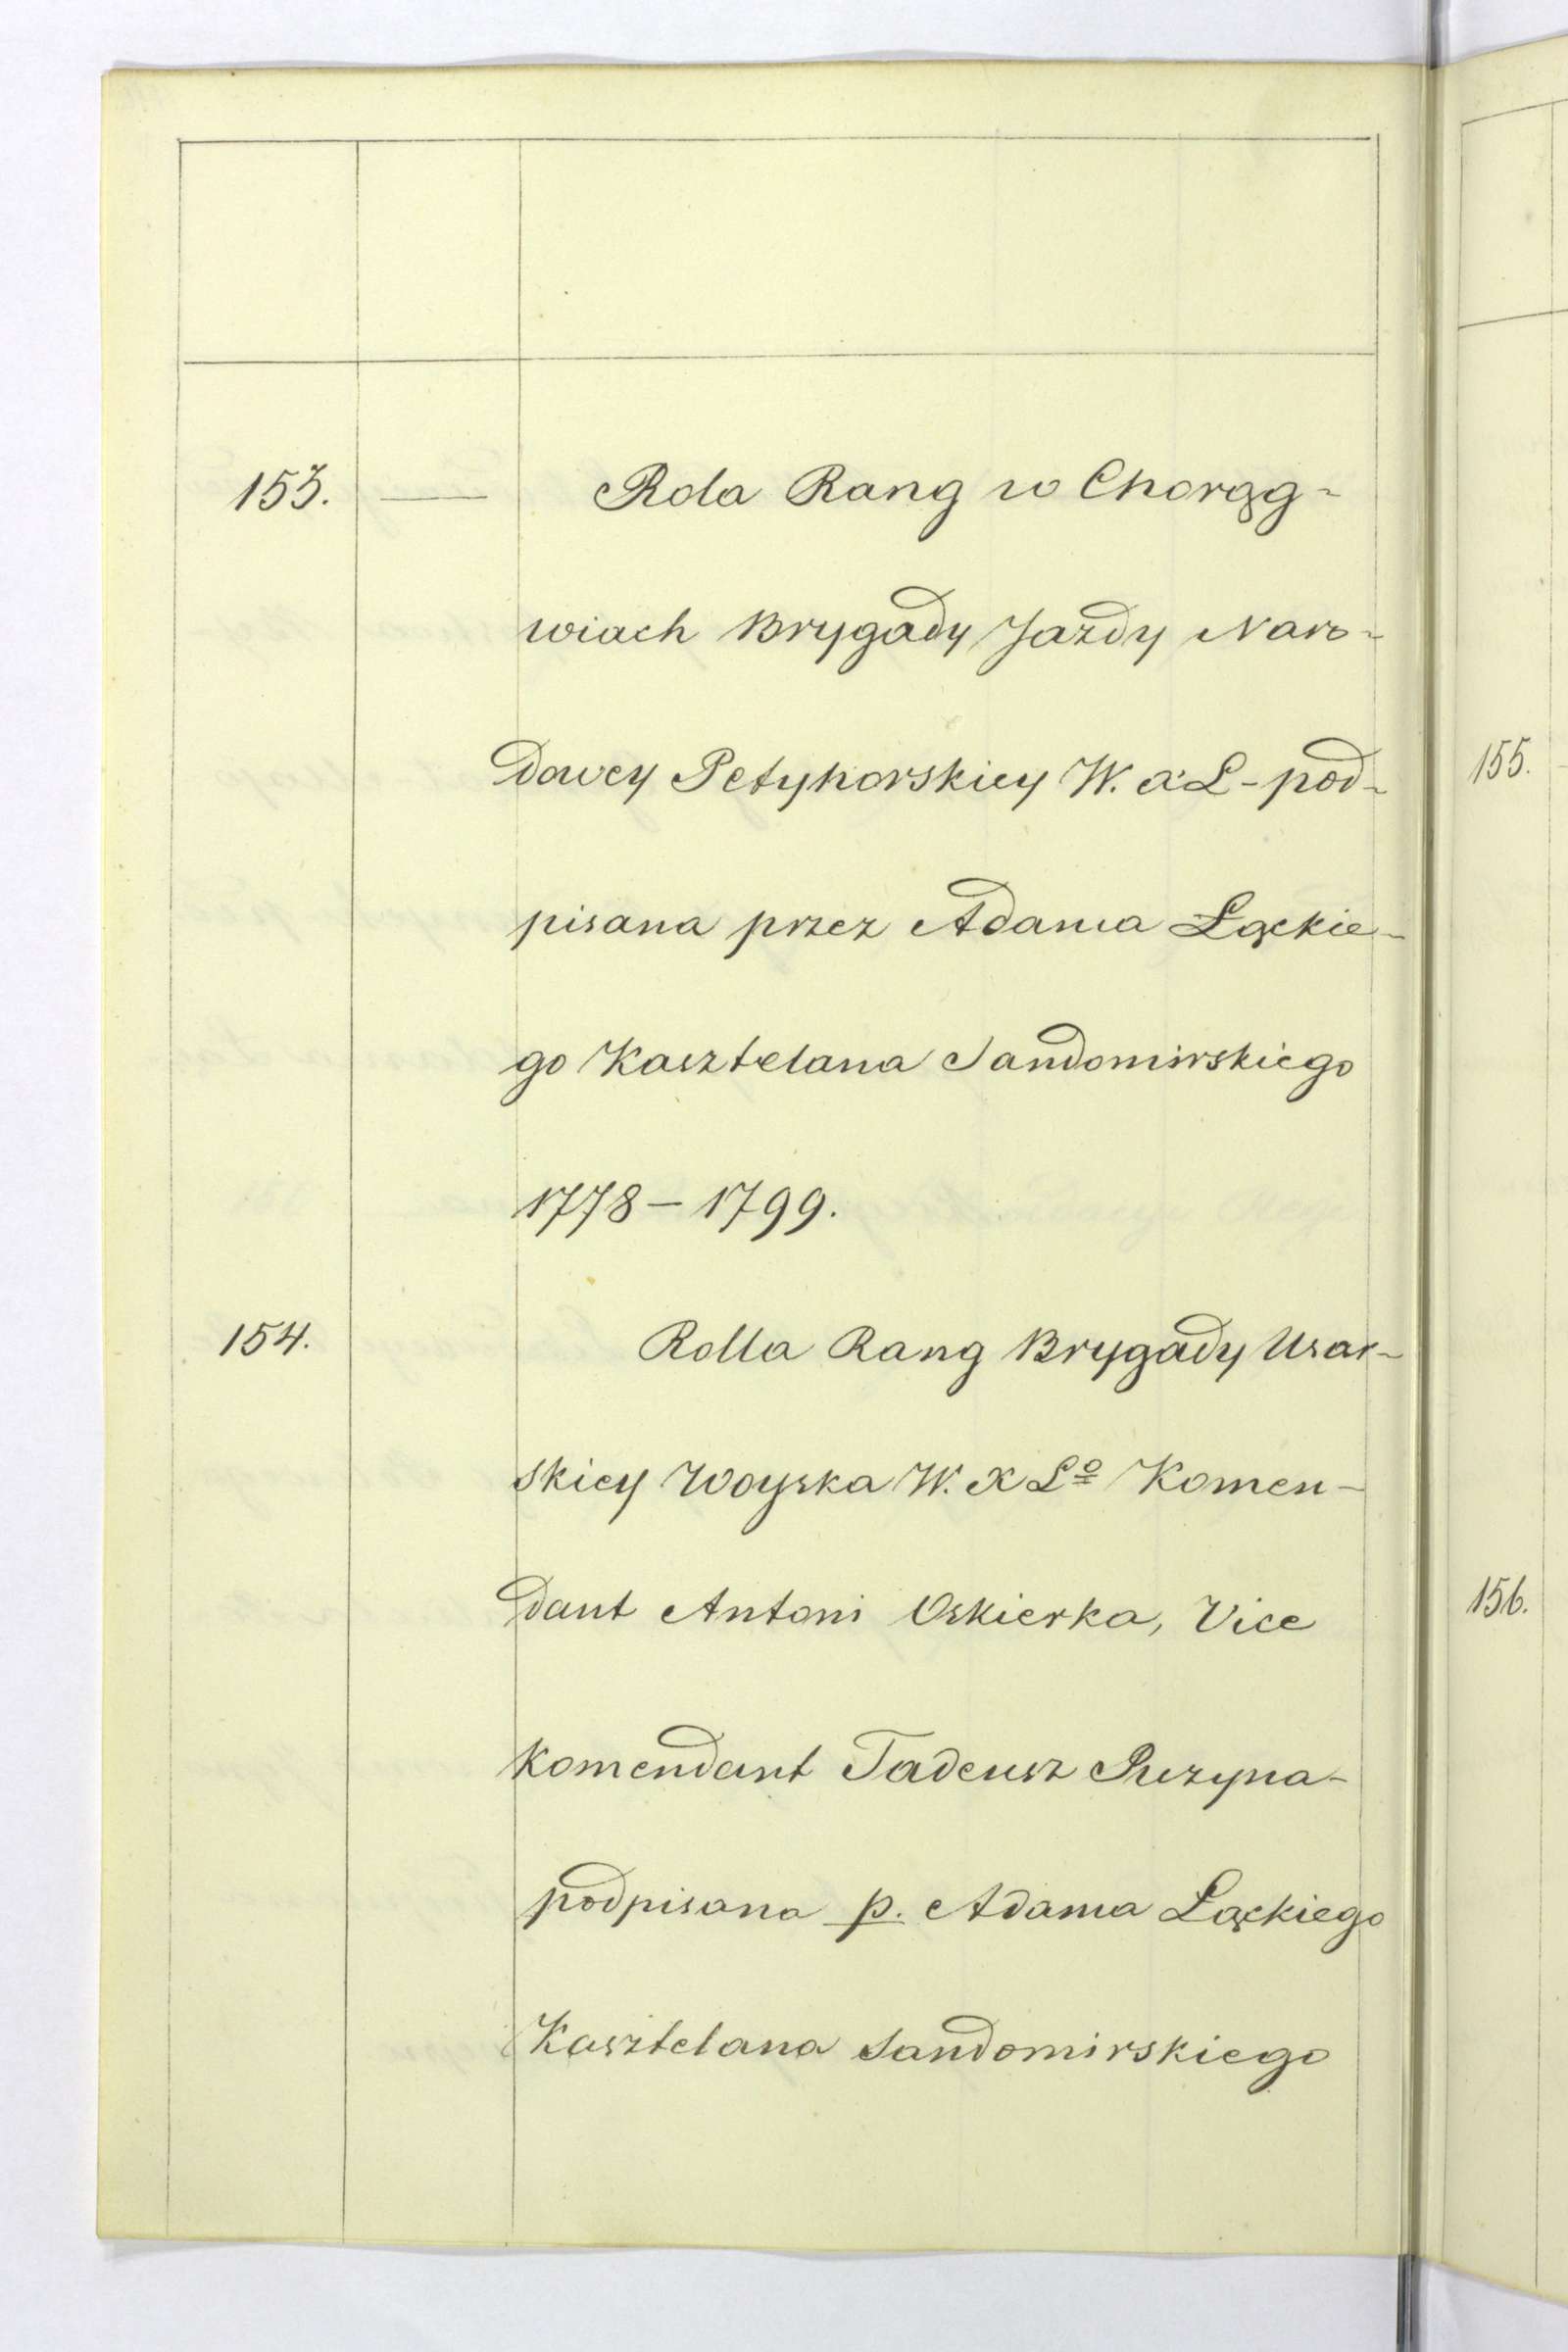 153. — Rola Rang w Chorąg-
wiach Brygady Jazdy Naro-
dowey Petyhorskiey W. X L - pod-
pisana przez Adama Łąckie-
go Kasztelana Sandomirskiego
1778 – 1799.
154. Rolla Rang Brygady Usar-
skiey Woyska W. X Lº Komen-
dant Antoni Oskierka, Vice
Komendant Tadeusz Puzyna -
podpisana p. Adama Łąckiego
Kasztelana Sandomirskiego
155.
156.